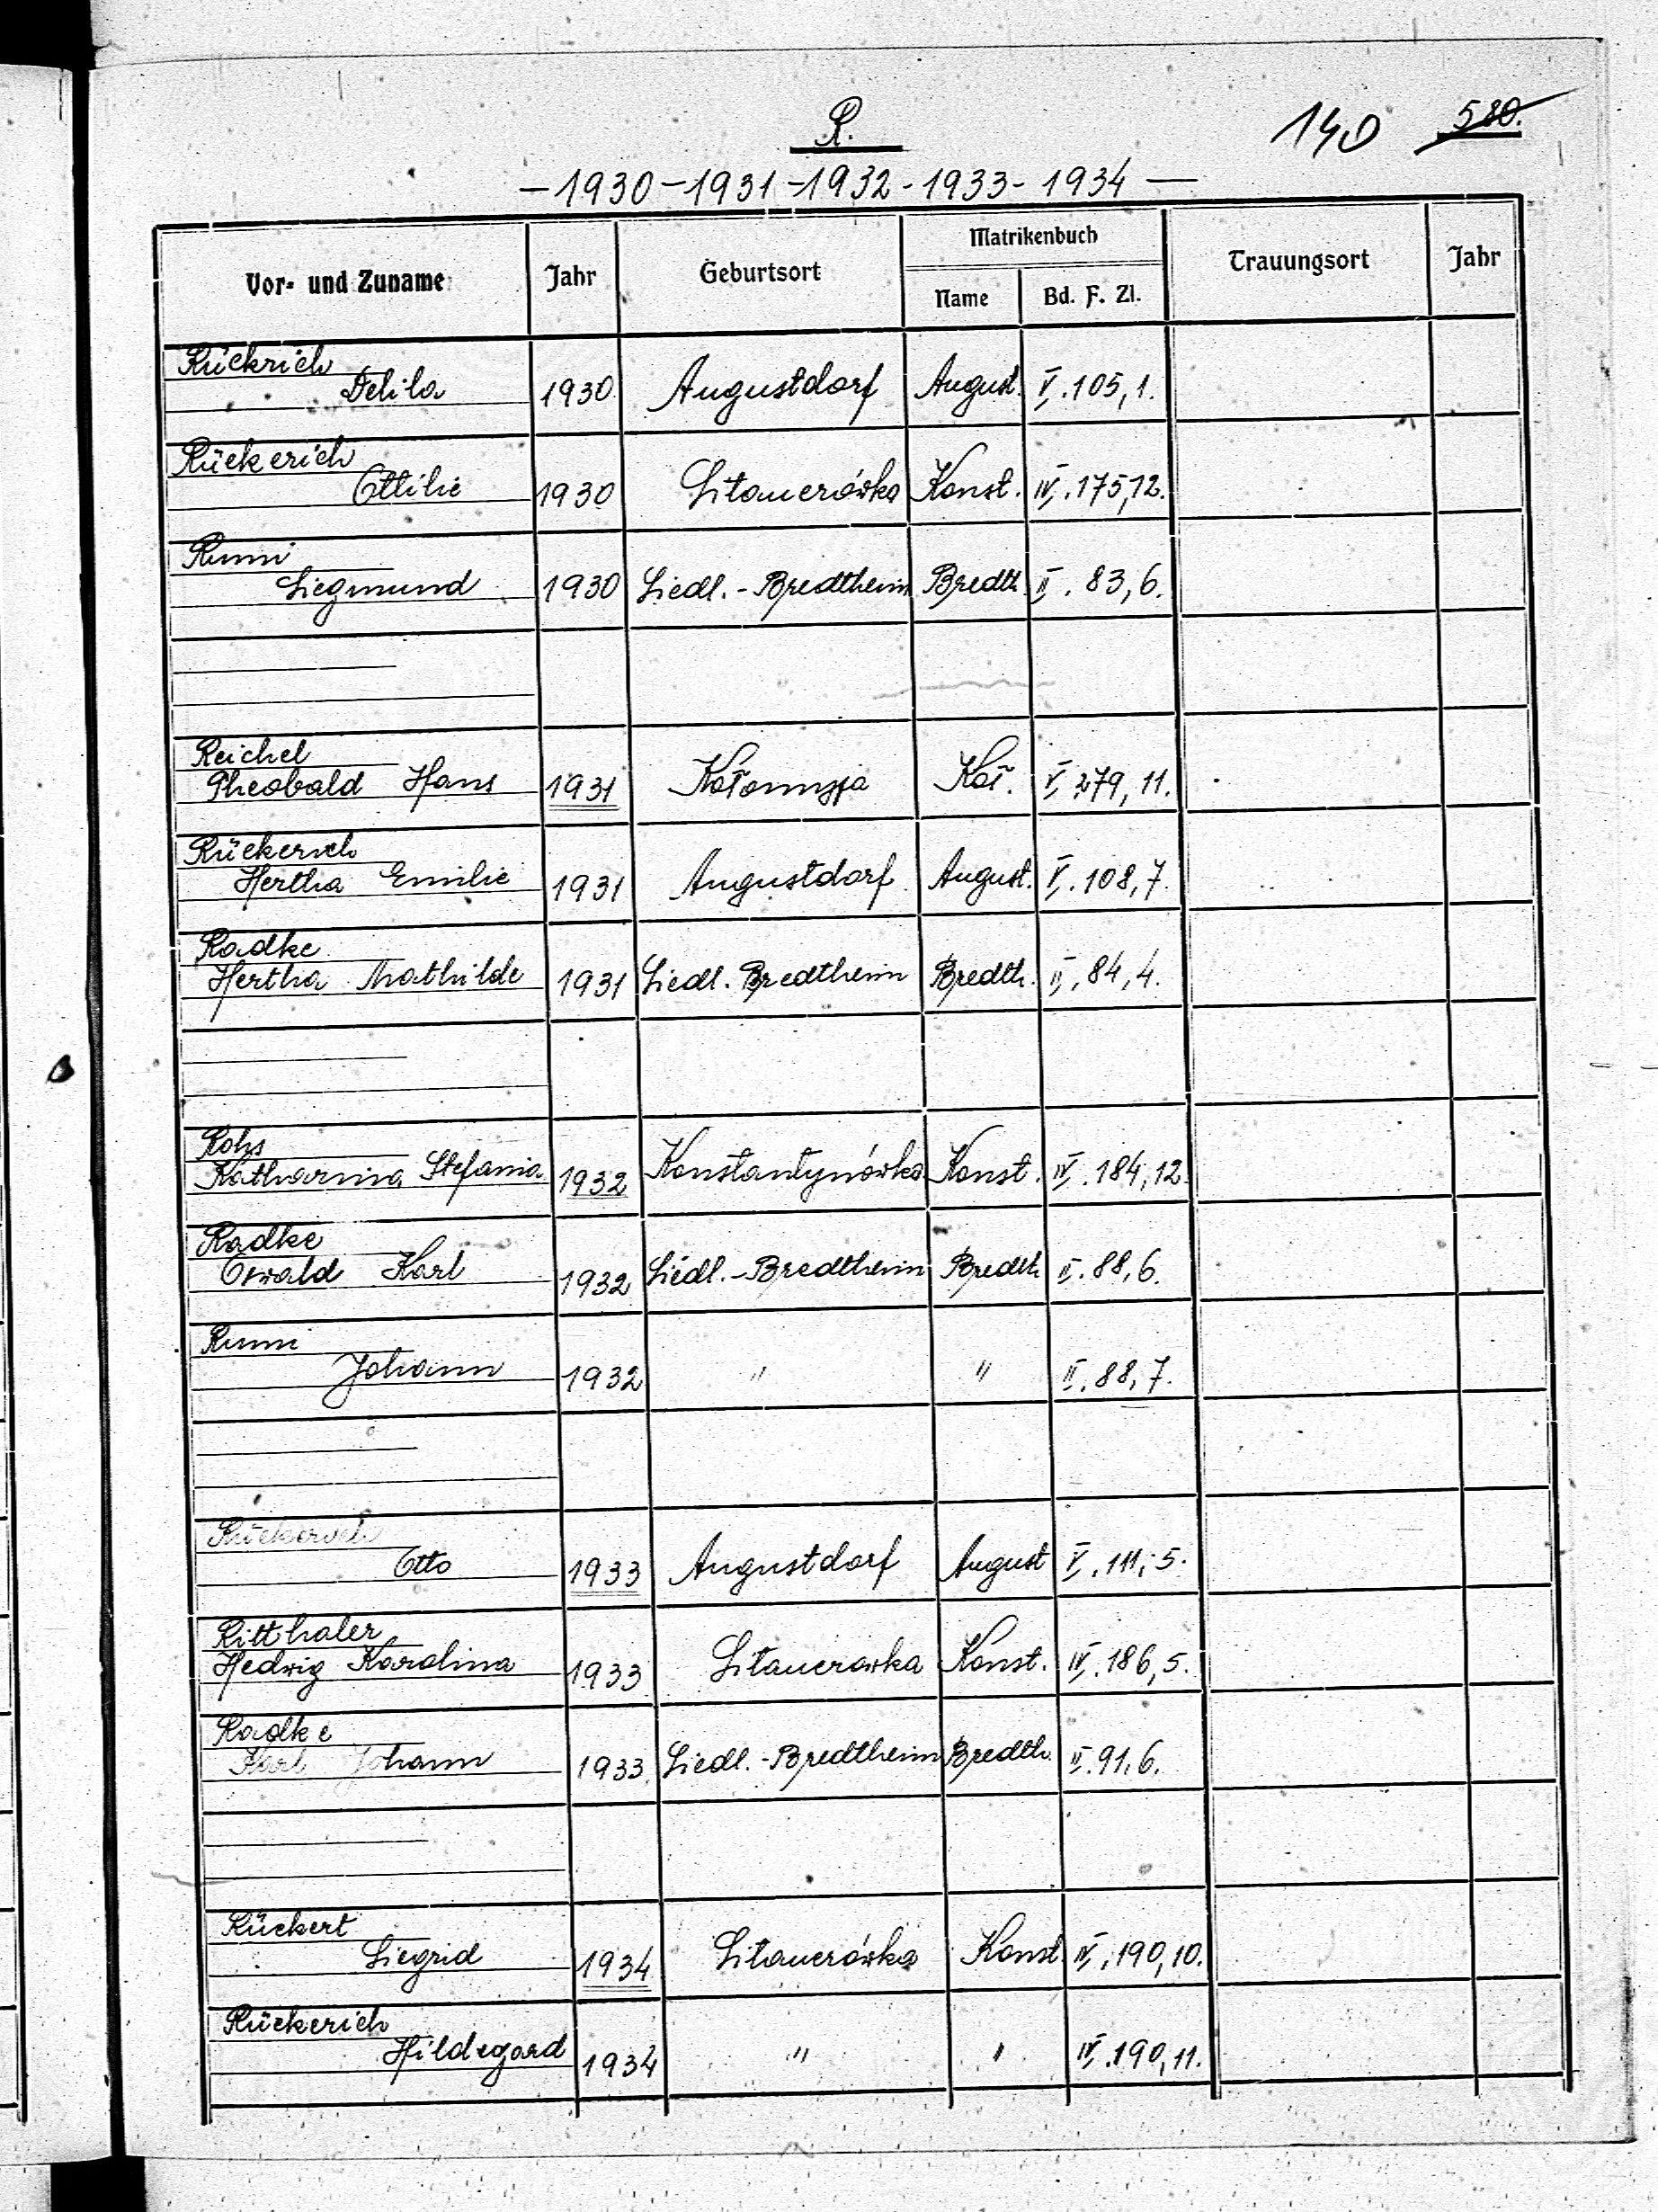 R.
140 580.
— 1930 – 1931 – 1932 - 1933 - 1934 —
Vor- und Zuname Jahr Geburtsort Matrikenbuch Trauungsort Jahr
Name Bd. F. Zl.
Rückrich
Delila 1930 Augustdorf August. V. 105, 1.
Rückerich
Ottilie 1930 Sitauerówka Konst. IV. 175, 12.
Rumi
Siegmund 1930 Siedl. - Bredtheim Bredth. II. 83, 6.
Reichel
Theobald Hans 1931 Kołomyja Koł. V. 279, 11.
Rückerich
Hertha Emilie 1931 Augustdorf August. V. 108, 7.
Radke
Hertha Mathilde 1931 Siedl. Bredtheim Bredth. II. 84, 4.
Rohs
Katharina Stefania 1932 Konstantynówka Konst. IV. 184, 12.
Radke
Oswald Karl 1932 Siedl. - Bredtheim Bredth II. 88, 6.
Rumi
Johann 1932 " " II. 88, 7.
Rückerich
Otto 1933 Augustdorf August V. 111, 5.
Ritthaler
Hedwig Karolina 1933 Sitauerowka Konst. IV. 186, 5.
Radke
Karl Johann 1933. Siedl. - Bredtheim Bredth. II. 91, 6.
Rückert
Siegrid 1934 Sitauerówka Konst. IV. 190, 10.
Rückerich
Hildegard 1934 " " IV. 190, 11.